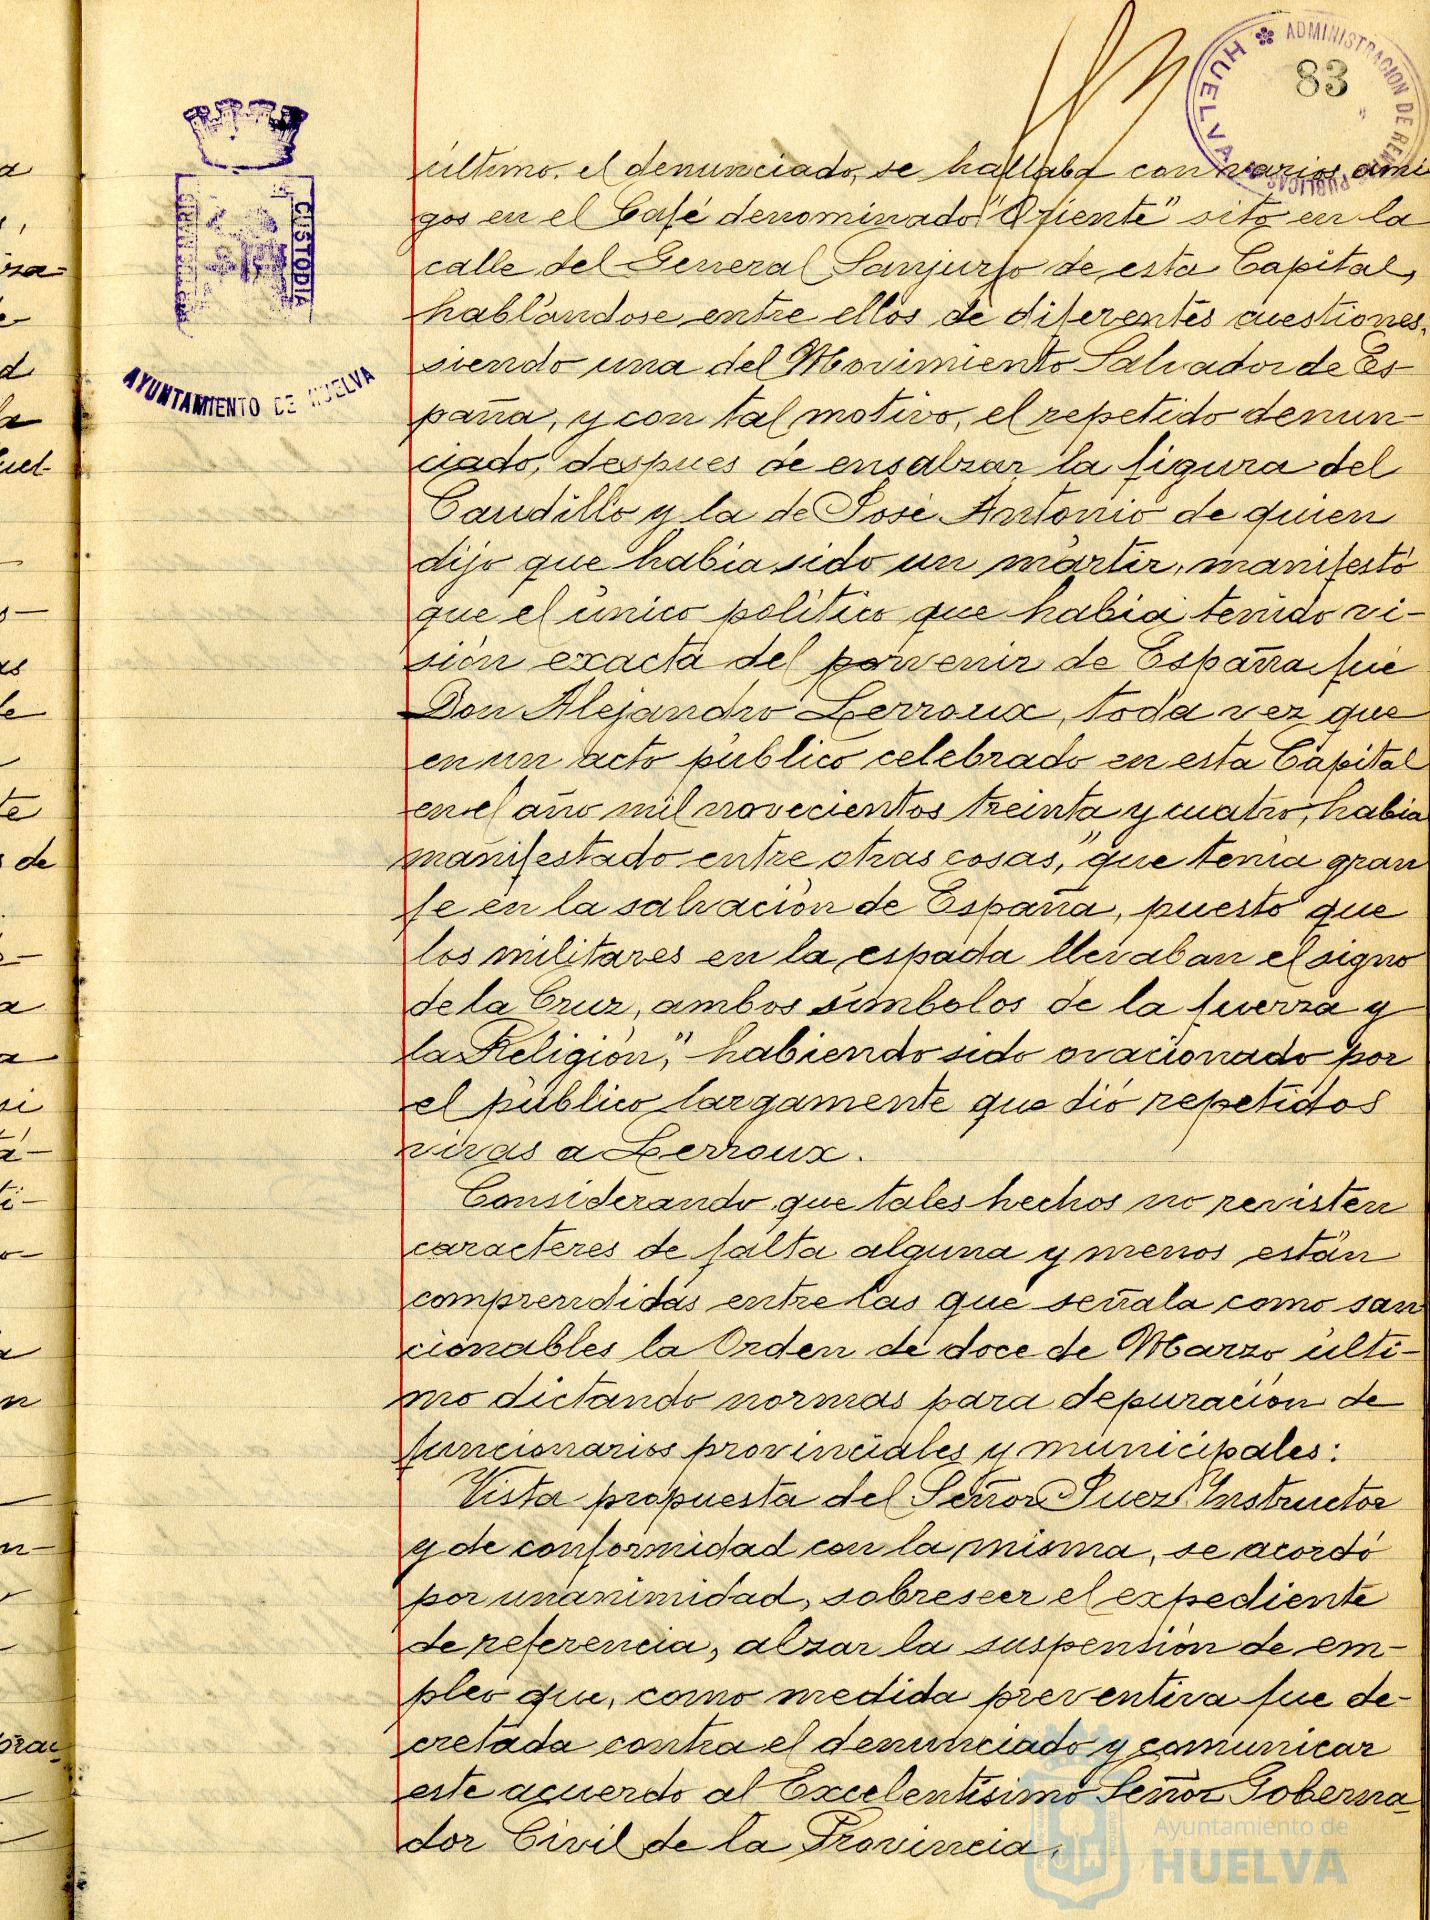 83
ADMINISTRACION DE RENTAS PUBLICAS
HUELVA
CUSTODIA
AYUNTAMIENTO DE HUELVA
último, el denunciado, se hallaba con varios ami
gos en el Café denominado "Oriente" sito en la
calle del General Sanjurjo de esta Capital,
hablándose entre ellos de diferentes cuestiones,
siendo una del Movimiento Salvador de Es-
paña, y con tal motivo, el repetido denun-
ciado, despues de ensalzar la figura del
Caudillo y la de José Antonio de quien
dijo que había sido un mártir, manifestó
que el único político que había tenido vi-
sión exacta del porvenir de España fué
Don Alejandro Lerroux, toda vez que
en un acto público celebrado en esta Capital
en el año mil novecientos treinta y cuatro, había
manifestado entre otras cosas, "que tenía gran
fe en la salvación de España, puesto que
los militares en la espada llevaban el signo
de la Cruz, ambos símbolos de la fuerza y
la Religión", habiendo sido ovacionado por
el público largamente que dió repetidos
vivas a Lerroux.
Considerando que tales hechos no revisten
caracteres de falta alguna y menos están
comprendidas entre las que señala como san
cionables la Orden de doce de Marzo últi-
mo dictando normas para depuración de
funcionarios provinciales y municipales:
Vista propuesta del Señor Juez Instructor
y de conformidad con la misma, se acordó
por unanimidad, sobreseer el expediente
de referencia, alzar la suspensión de em-
pleo que, como medida preventiva fue de-
cretada contra el denunciado y comunicar
este acuerdo al Excelentísimo Señor Goberna-
dor Civil de la Provincia.
Ayuntamiento de
HUELVA